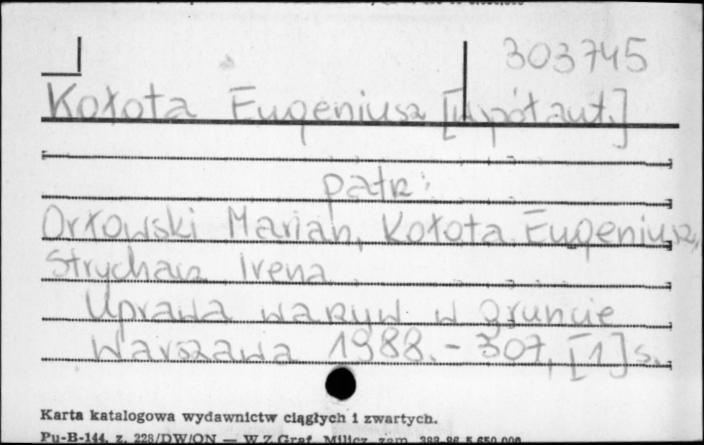 303745
Kołota Eugeniusz [współaut.]
patrz:
Orłowski Marian, Kołota Eugeniusz,
Strycharz Irena
Uprawa warzyw w gruncie
Warszawa 1988. - 307, [1] s.
Karta katalogowa wydawnictw ciągłych i zwartych.
Pu-B-144, z. 228/DW/ON — W.Z.Graf. Milicz, zam.